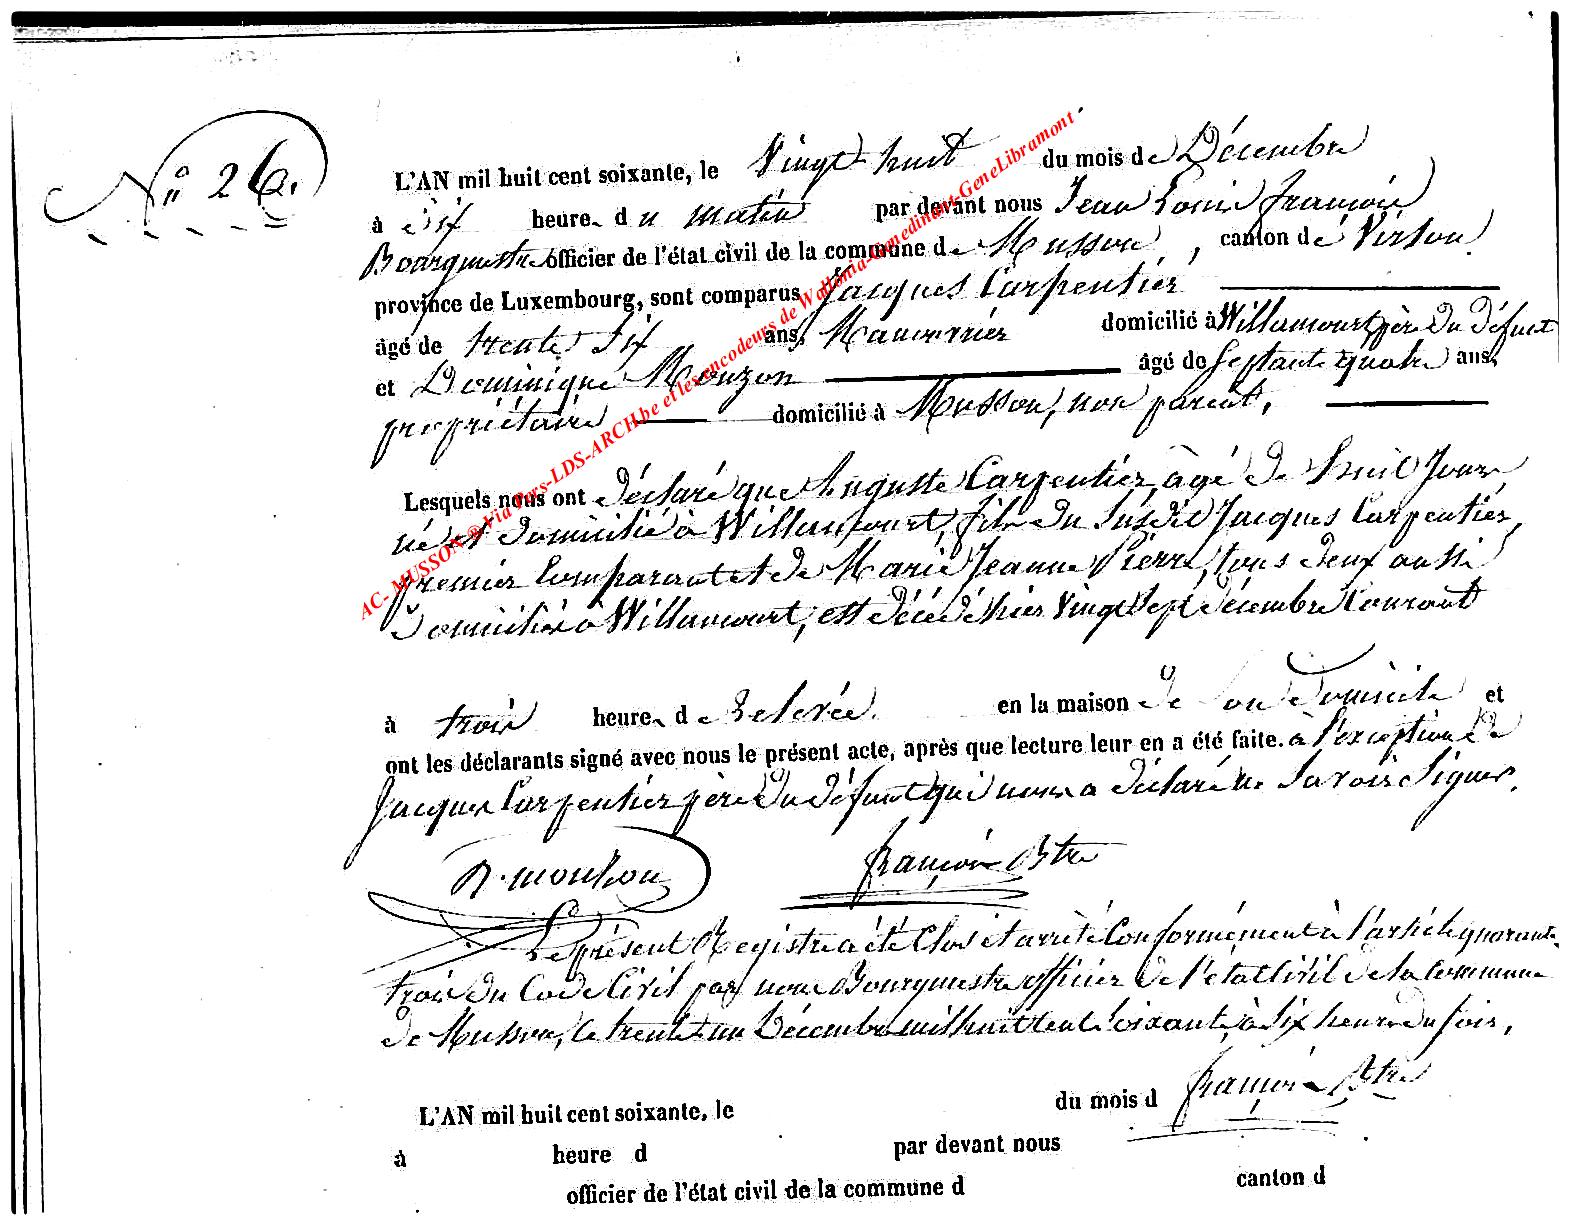 N° 26.
L'AN mil huit cent soixante, le Vingt huit du mois de Décembre
à dix heures du matin par devant nous Jean Louis François
Bourgmestre officier de l'état civil de la commune de Musson, canton de Virton
province de Luxembourg, sont comparus Jacques Carpentier
âgé de trente six ans, Manouvrier domicilié à Willancourt, père du défunt
et Dominique Mouzon âgé de septante quatre ans,
propriétaire domicilié à Musson, non parent,
Lesquels nous ont déclaré que Auguste Carpentier, âgé de huit Jours,
né et domicilié à Willancourt, fils du susdit Jacques Carpentier,
premier Comparant et de Marie Jeanne Pierre, tous deux aussi
domiciliés à Willancourt, est décédé hier Vingt Sept décembre Courant
à trois heures de relevée. en la maison de son domicile et
ont les déclarants signé avec nous le présent acte, après que lecture leur en a été faite. à l'exception de
Jacques Carpentier père du défunt qui nous a déclaré ne savoir signer.
D. mouson François Bstre
Le présent Registre a été Clos et arrêté Conformément à l'article quarante
trois du Code Civil par nous Bourgmestre officier de l'état Civil de la Commune
de Musson, le trente un Décembre mil huit cent soixante, à six heures du soir.
François Bstre
L'AN mil huit cent soixante, le du mois d
à heure d par devant nous
officier de l'état civil de la commune d canton d
AC- MUSSON @ Via Pers-LDS-ARCH.be et les encodeurs de Wallonia-Genedinant-GeneLibramont